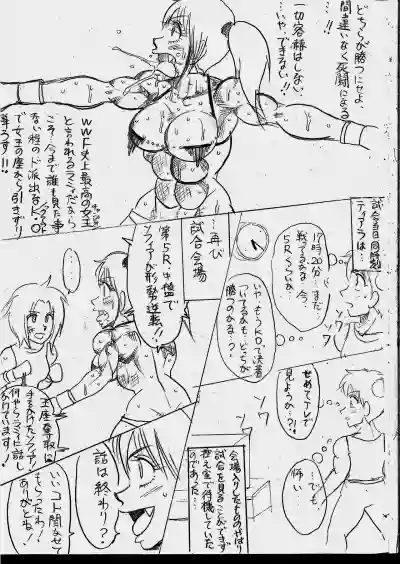 どちらが勝つにせよ、
間違いなく死闘になる
…!!
一切容赦はしない、
…いや、できない!!
WWF史上最高の女王
と言われるラミィだから
こそ…今まで誰も見た事
ない程のド派出なKO
で女王の座から引きずり
降ろす!!!
試合当日同時刻
ティアラは…
17時20分…まだ
戦ってるかな…今、
5Rくらいか…
いや、もうKOで決着
ついてるかも…どっちが
勝つのかな…?
ソワ
ソワ
…再び
試合会場
第5R中盤で
ソフィアが形勢逆転!!
王座奪取に
手をかけたソフィア!
何やらラミィに話し
かけています!
せめてTVで
見ようか…?!
…でも
怖い…
会場入りしたものやはり
試合を見ることができず
控え室で待機していた
のであった…
話は終わり?
いいコト聞かせて
もらったわ!
ありがとね!